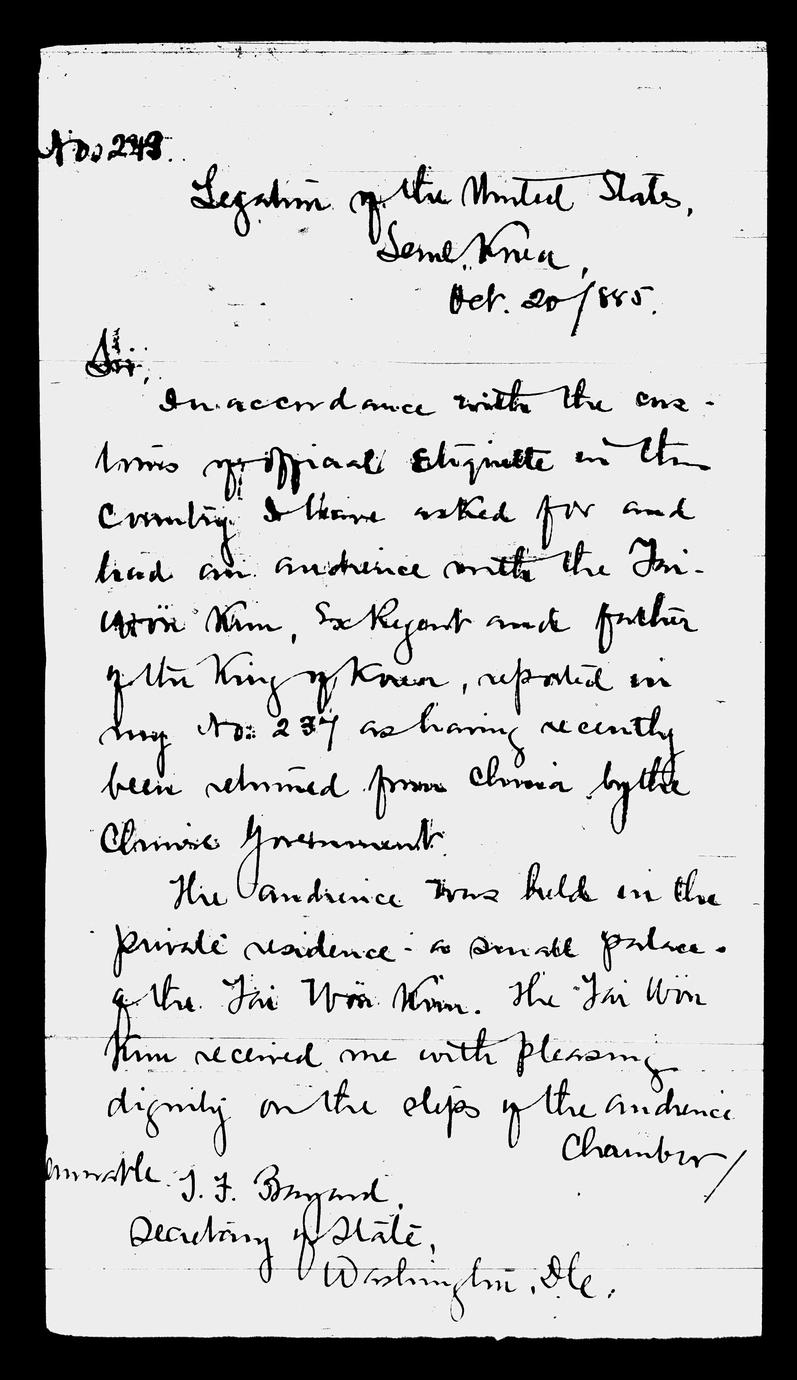 No. 243.
Legation of the United States,
Seoul, Korea,
Oct. 20/885.
Sir,
In accordance with the cus-
toms of official etiquette in this
country I have asked for and
had an audience with the Tai-
Wön Kun, Ex Regent and father
of the King of Korea, reported in
my No. 237 as having recently
been returned from China by the
Chinese Government.
The audience was held in the
private residence - a small palace -
of the Tai Wön Kun. The Tai Won
Kun received me with pleasing
dignity on the steps of the audience
Chamber/
onorable T. F. Bayard,
Secretary of State,
Washington, D.C.